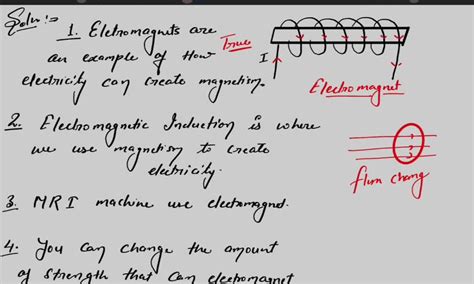 Soln:-
1. Eletromagnets are
an example of How
True
electricity can create magnetism.
I
Electromagnet
2. Electromagnetic Induction is where
we use magnetism to create
electricity.
1
2
3
flux chang
3. MRI machine use electromagnet.
4. You can change the amount
of strength that can electromagnet